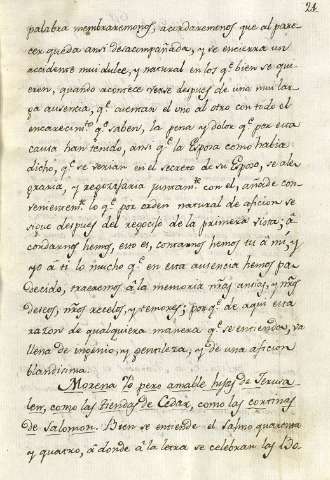 24
palabra membraremonos, acordaremonos que al pare-
cer queda ansi desacompañada, y se encierra un
accidente mui dulce, y natural en los q.e bien se quie-
ren, quando acontece verse despues de una mui lar-
ga ausencia, q.e cuentan el uno al otro con todo el
encarecim.to q.e saben, la pena y dolor q.e por esta
causa han tenido, ansi q.e la Esposa como habia
dicho, q.e se verian en el secreto de su Esposo, se ale-
graria, y regozijaria juntam.te con el, añade con-
venientem.te lo q.e por orden natural de aficion se
sigue despues del regocijo de la primera vista; a-
cordarnos hemos, esto es, contarnos hemos tu à mi, y
yo à ti lo mucho q.e en esta ausencia hemos pa-
decido, traeremos à la memoria nras ansias, y nros
deseos, nros recelos, y temores; por q.e de aqui esta
razon de qualquiera manera q.e se entienda, va
llena de ingenio, y gentileza, y de una aficion
blandisima.
Morena Yo pero amable hijas de Jerusa-
len, como las tiendas de Cedar, como las cortinas
de Salomon. Bien se entiende el Salmo quarenta
y quatro, à donde à la letra se celebran las Bo-